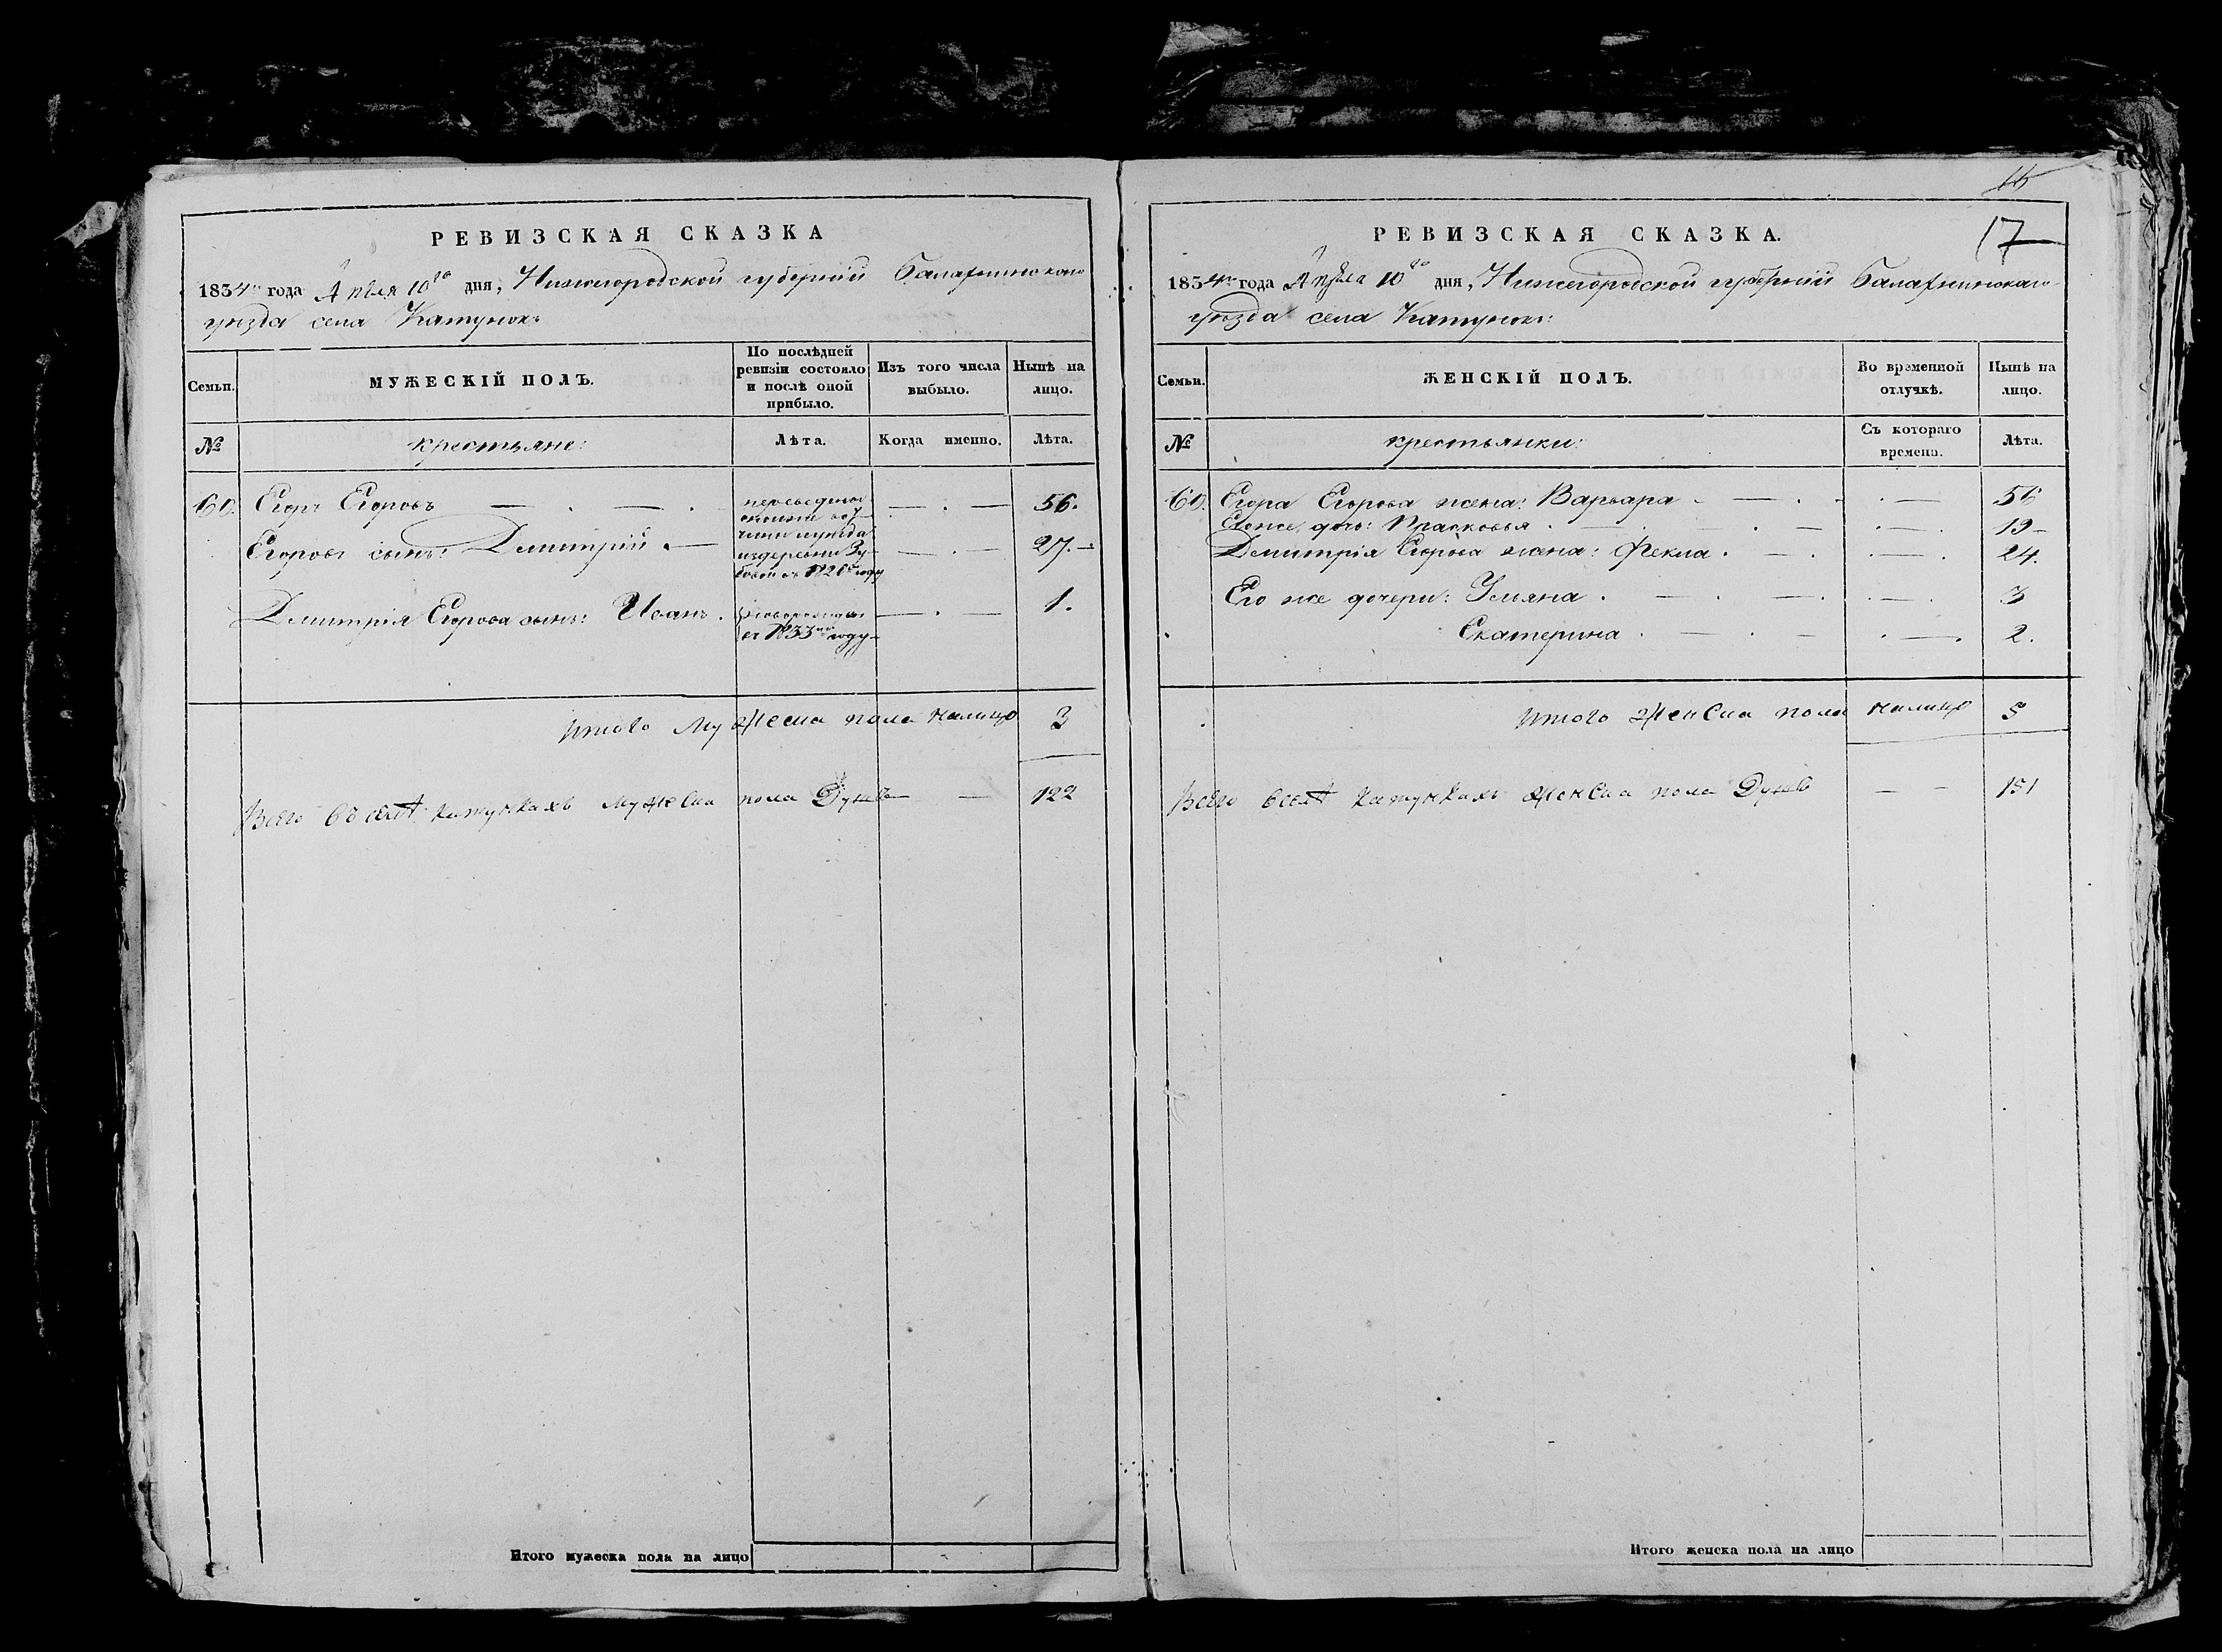 РЕВИЗСКАЯ СКАЗКА
1834го года Апреля 10го дня, Нижегородской губернии Балахнинскаго
уезда села Катунокъ
Семьи. МУЖЕСКІЙ ПОЛЪ. По послѣдней ревизіи состояло и послѣ оной прибыло. Изъ того числа выбыло. Нынѣ на лицо.
№ крестьяне: Лѣта. Когда именно. Лѣта.
60. Егоръ Егоровъ 56.
Егоровъ сынъ: Дмитрій 27.
из деревни Зу-
бовой въ 1820м году
Дмитрія Егорова сынъ: Иванъ. новорожденъ 1.
въ 1833м году
Итого Мужеска пола налицо 3
Всего въ селѣ Катункахъ мужеска пола Душъ 122
Итого мужеска пола на лицо
16
17
РЕВИЗСКАЯ СКАЗКА.
1834го года Апреля 10го дня, Нижегородской губерніи Балахнинскаго
уезда села Катунокъ:
Семьи. ЖЕНСКІЙ ПОЛЪ. Во временной отлучкѣ. Нынѣ на лицо.
№ крестьянки: Съ котораго времена. Лѣта.
60. Егора Егорова жена: Варвара 56
Его же дочь: Прасковья 19
Дмитрія Егорова жена: Фекла 24.
Его же дочери: Ульяна 3
Екатерина 2.
Итого Женска пола налицо 5
Всего в селѣ Катункахъ Женска пола Душъ 151
Итого женска пола на лицо